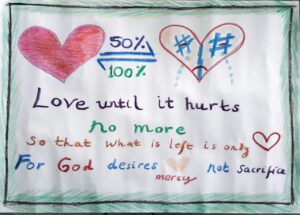 50%
100%
# #
Love until it hurts
no more
So that what is left is only
For God desires mercy not sacrifice